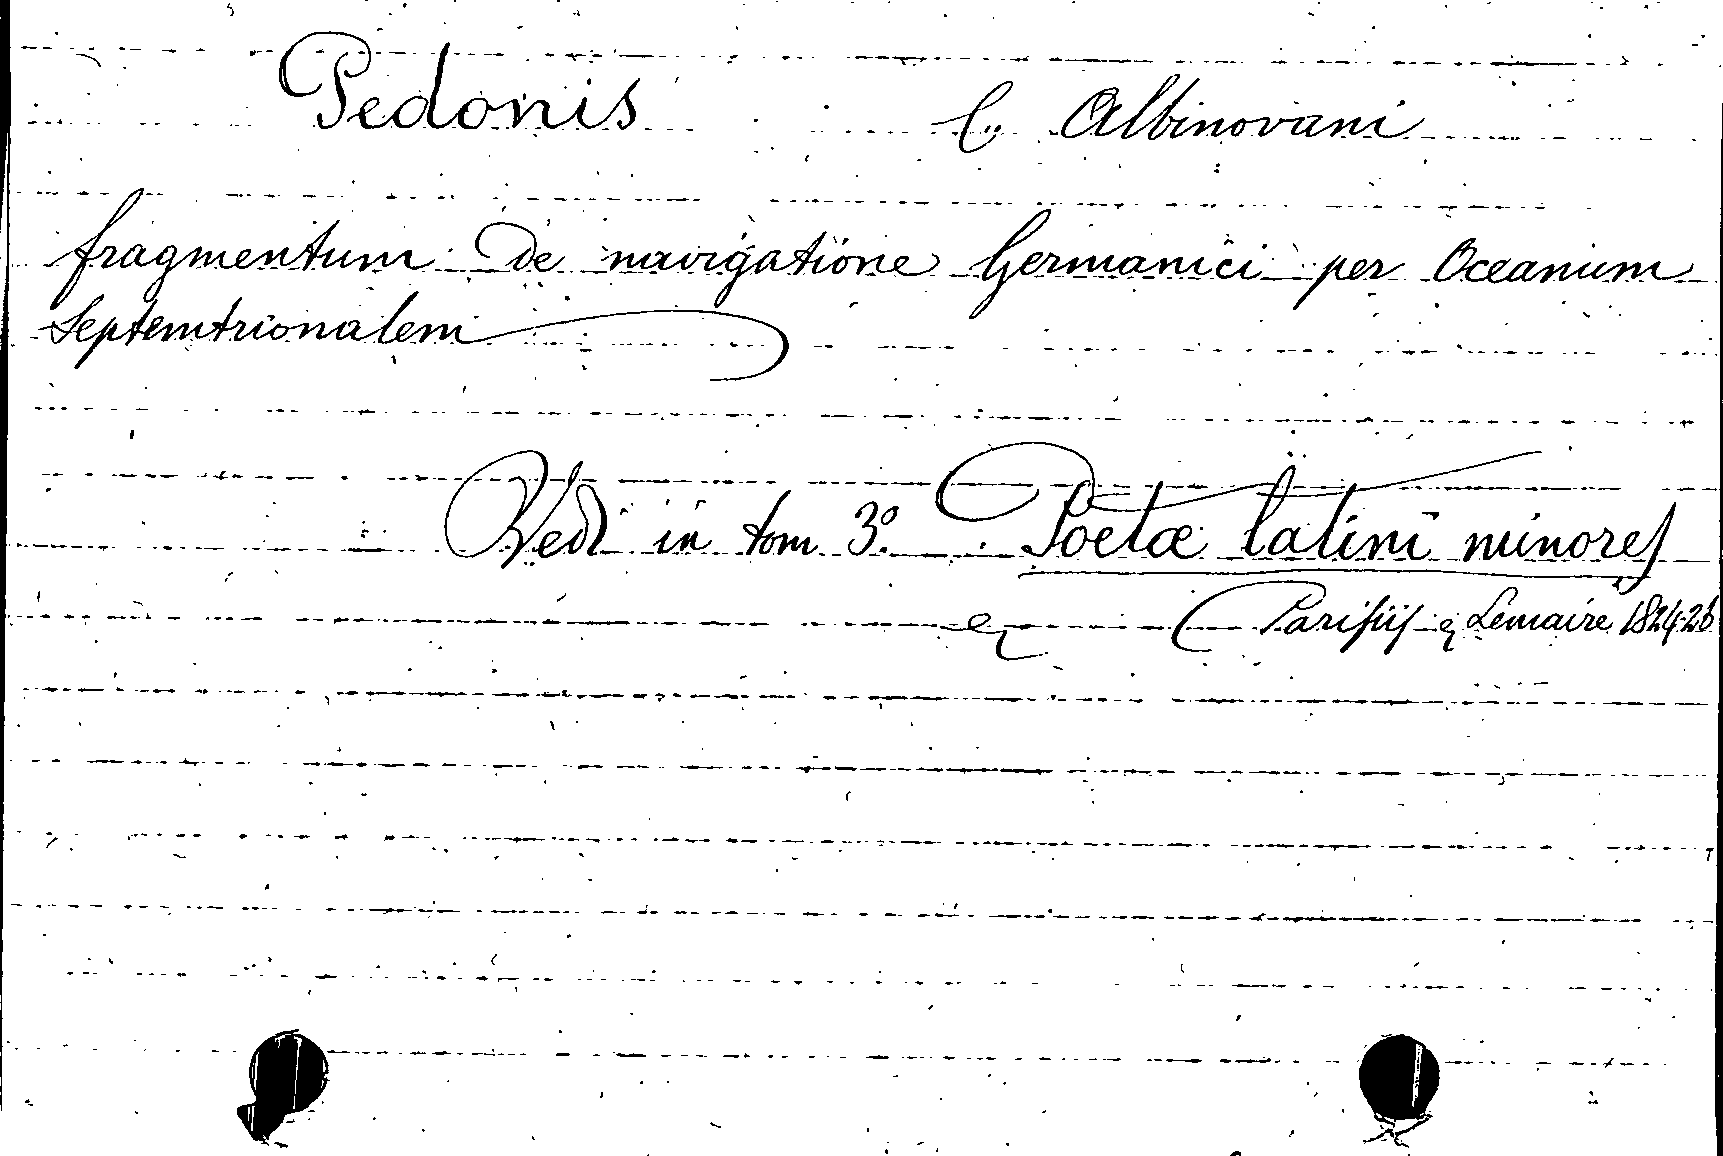 Pedonis C. Albinovani
fragmentum De navigatione Germanici per Oceanum
Septemtrionalem
Vedi in tom 3º. Poetæ latini minores
Parisiis Lemaire 1824-26